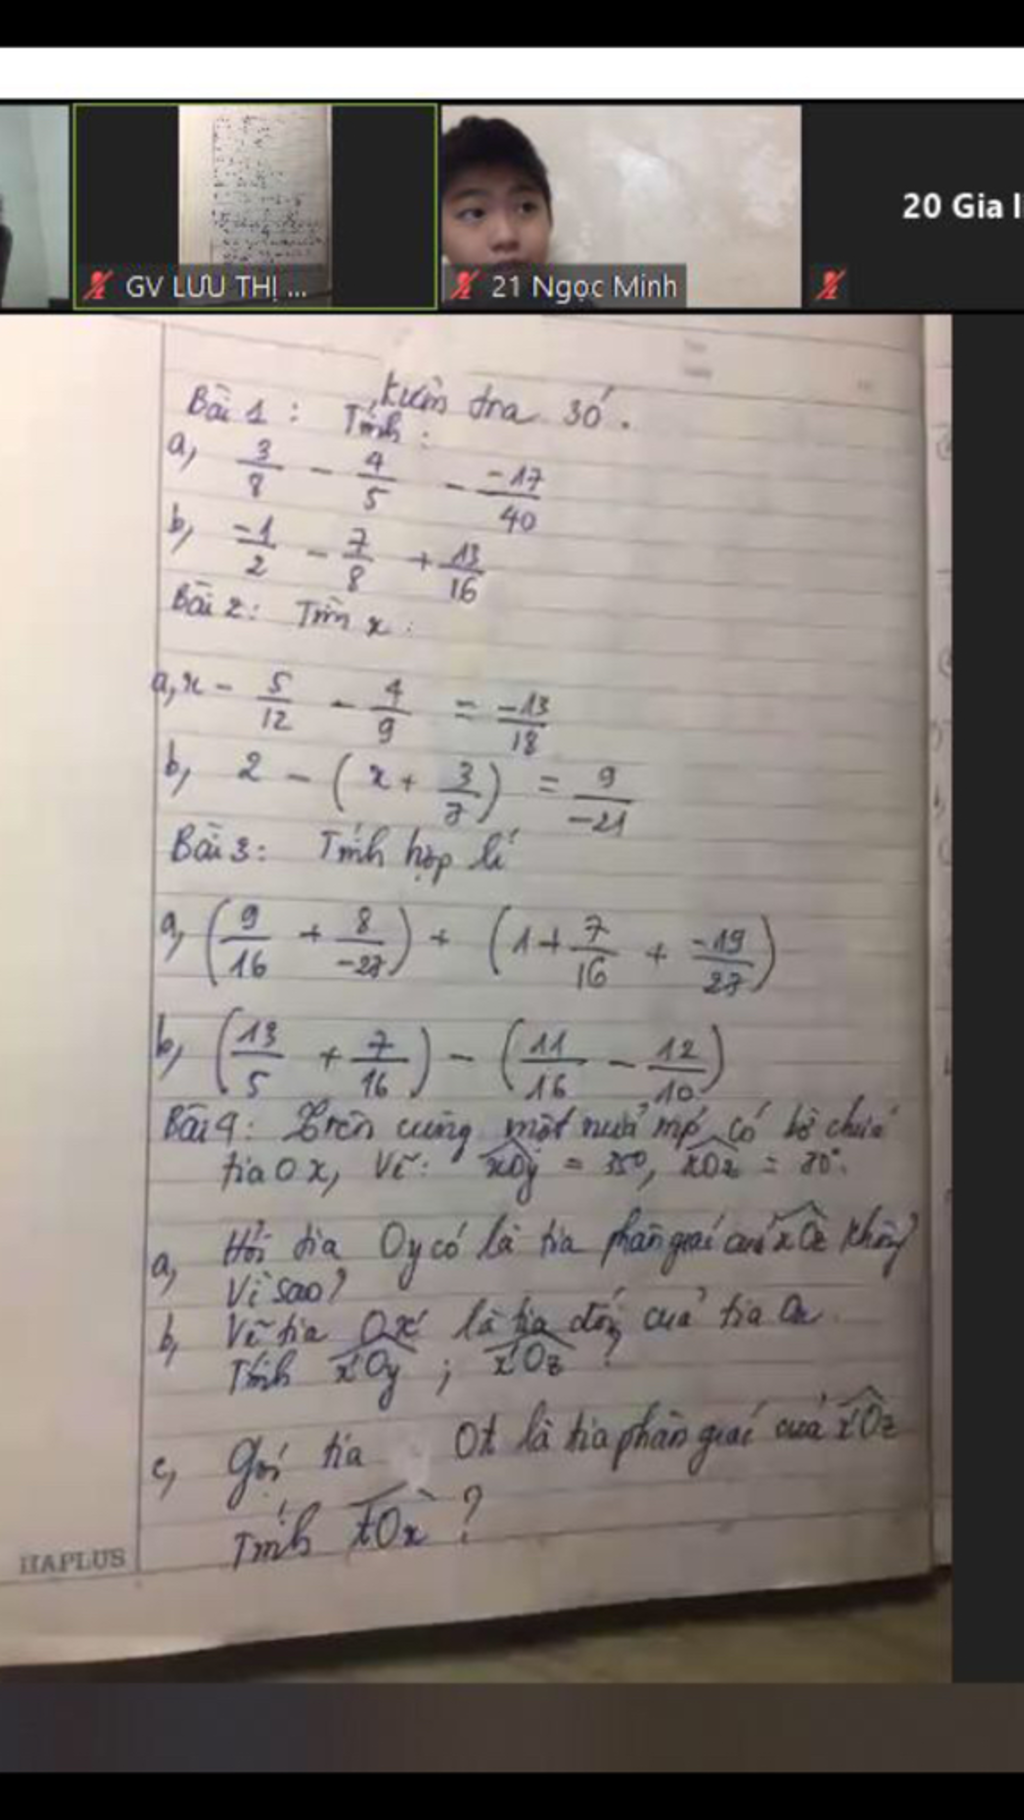 20 Gia l
GV LƯU THỊ ...
21 Ngọc Minh
Kiểm tra 30'.
Bài 1: Tính:
a, 3/8 - 4/5 - -17/40
b, -1/2 - 7/8 + 13/16
Bài 2: Tìm x:
a, x - 5/12 - 4/9 = -13/18
b, 2 - (x + 3/7) = 9/-21
Bài 3: Tính hợp lí
a, (9/16 + 8/-27) + (1 + 7/16 + -19/27)
b, (13/5 + 7/16) - (11/16 - 12/10)
Bài 4: Trên cùng một nửa mp có bờ chứa
tia Ox, Vẽ: xOy = 35°, xOz = 70°.
a, Hỏi tia Oy có là tia phân giác của xOz không?
Vì sao?
b, Vẽ tia Ox' là tia đối của tia Ox.
Tính x'Oy ; x'Oz ?
c, Gọi tia Ot là tia phân giác của x'Oz
Tính tOx ?
HAPLUS